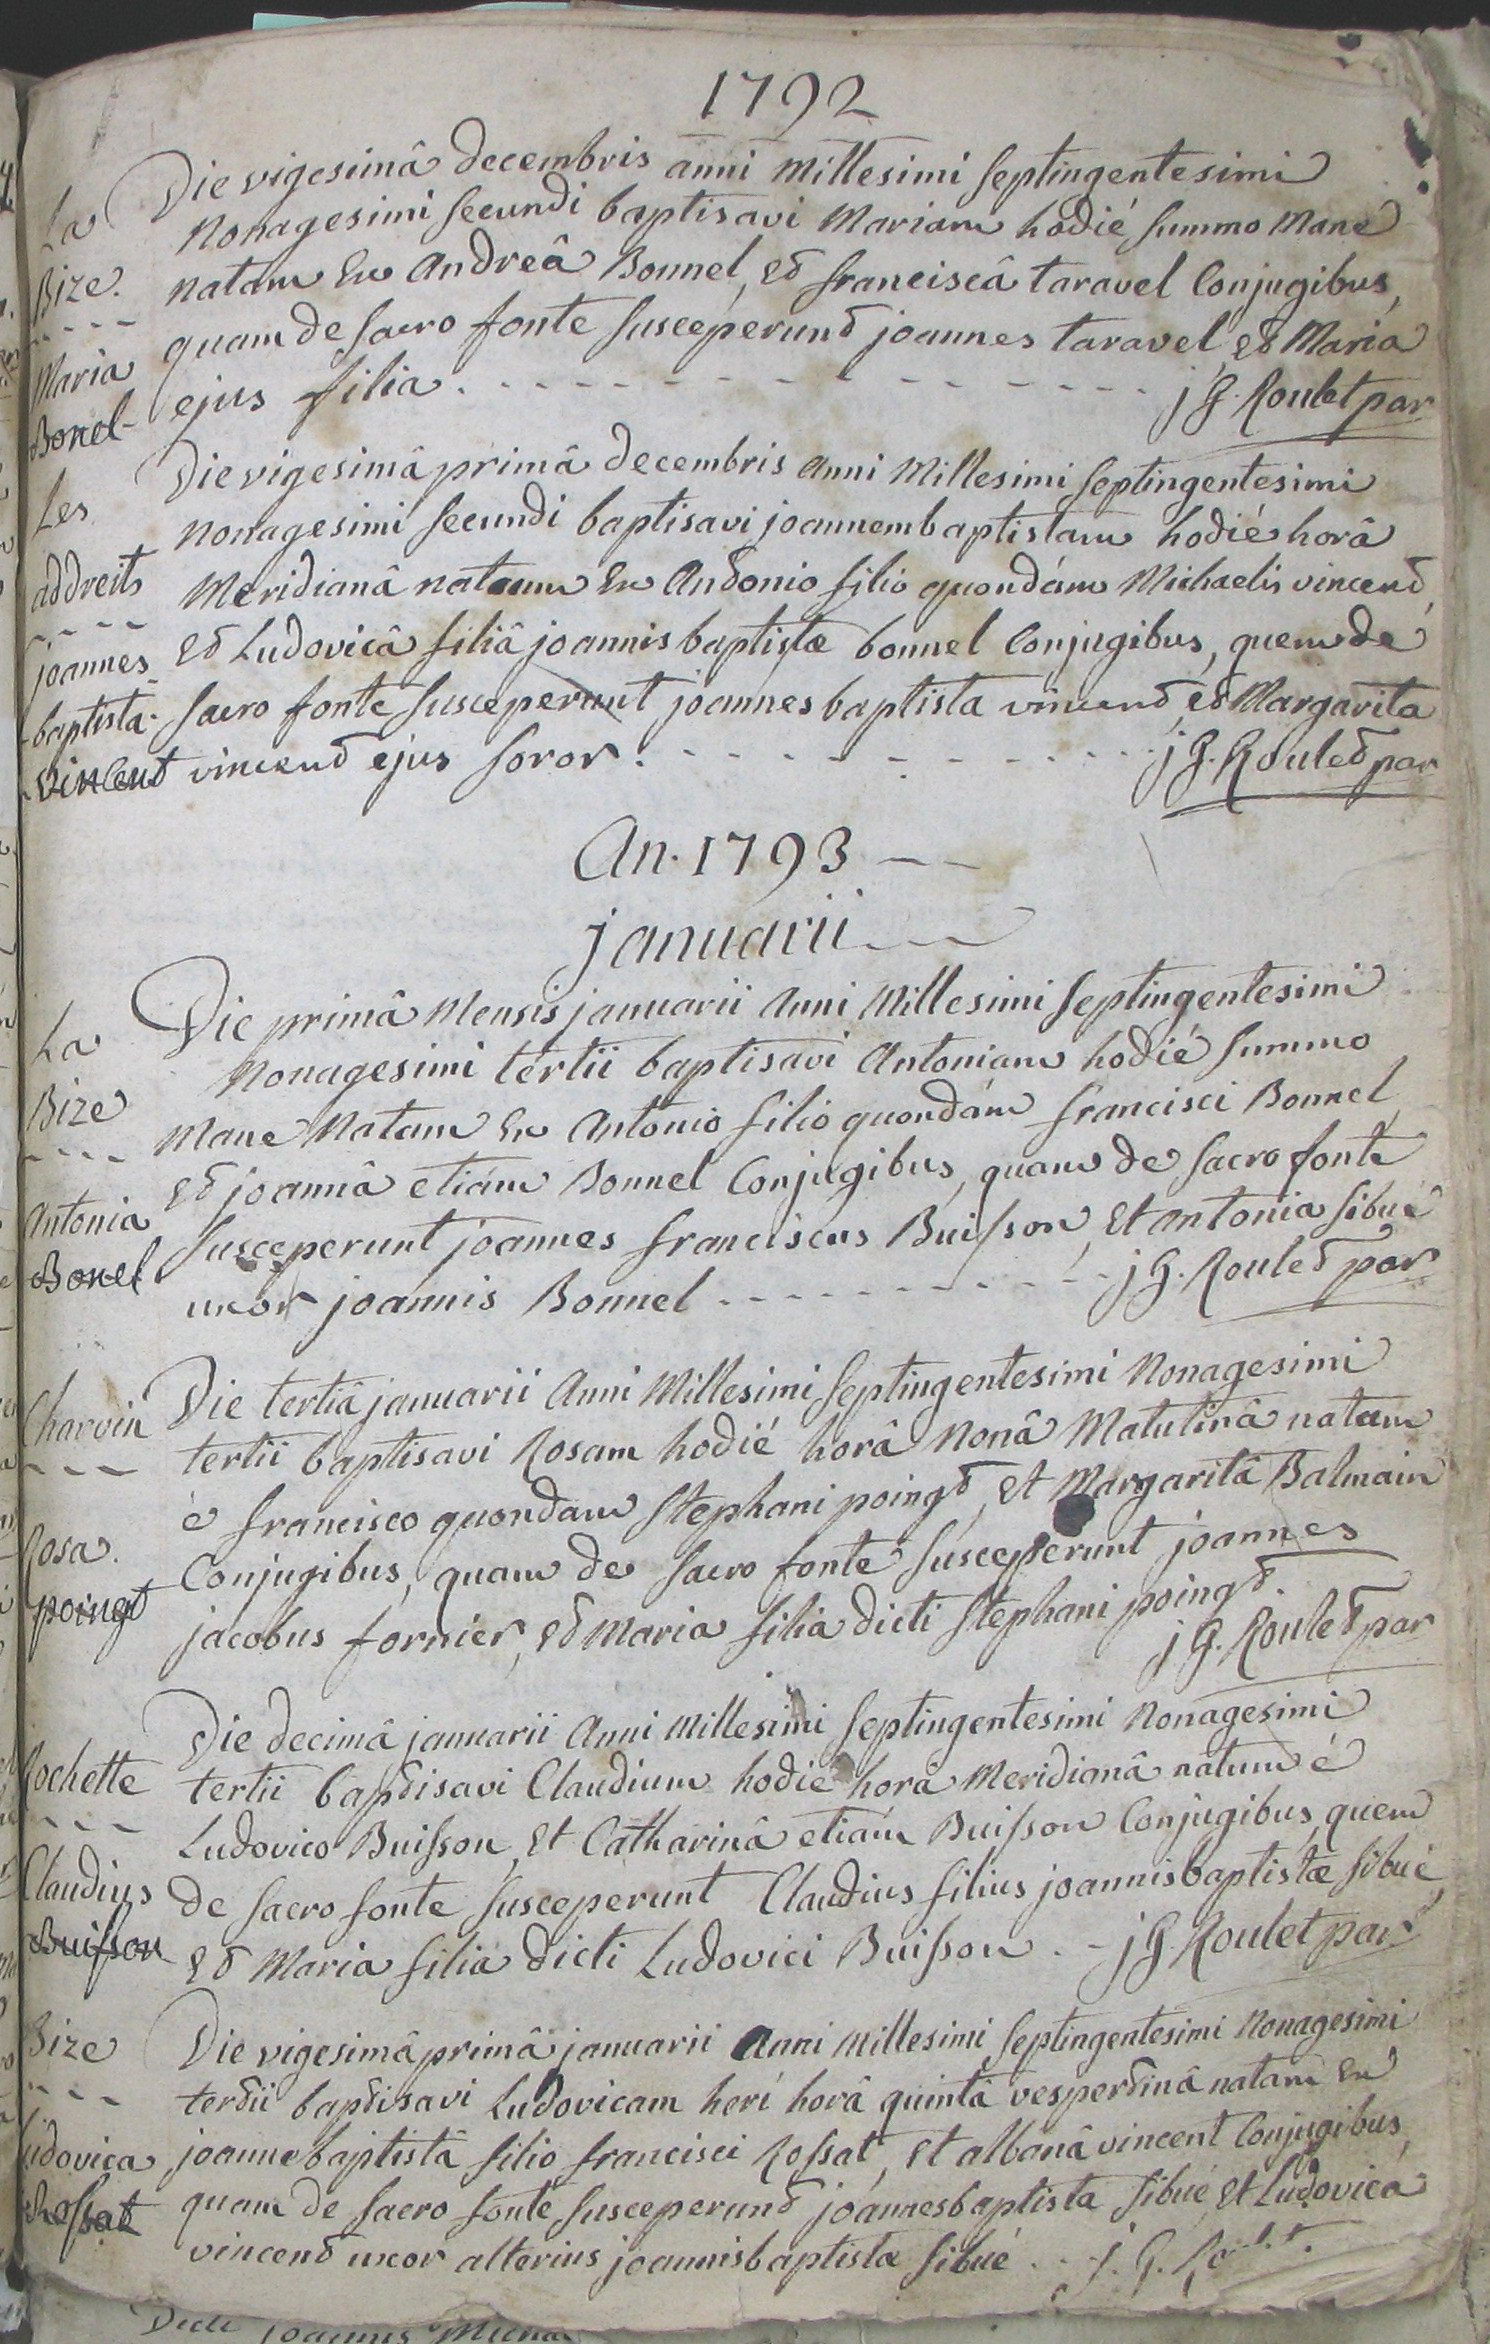 1792
La
Bize.
Maria
Bonel
Die vigesimâ decembris anni Millesimi septingentesimi
Nonagesimi secundi baptisavi Mariam hodié summo Mane
natam Ex Andreâ Bonnel, et franciscâ taravel Conjugibus,
quam de sacro fonte susceperunt joannes taravel, et Maria
ejus filia. j G. Roulet par
Les
addreits
joannes
baptista
Vincent
Die vigesimâ primâ decembris Anni Millesimi septingentesimi
Nonagesimi secundi baptisavi joannembaptistam hodié horâ
Meridianâ natum Ex Antonio filio quondám Michaelis vincent,
et Ludovicâ filiâ joannis baptistæ bonnel Conjugibus, quem de
sacro fonte susceperunt joannes baptista vincent, et Margarita
vincent ejus soror. j G. Roulet par
An. 1793
januarii
La
Bize
Antonia
Bonel
Die primâ Mensis januarii Anni Millesimi septingentesimi
Nonagesimi tertii baptisavi Antoniam hodié summo
Mane Natam Ex Antonio filio quondám francisci Bonnel,
et joannâ etiám Bonnel Conjugibus, quam de sacro fonte
susceperunt joannes franciscus Buisson, et antonia sibué
uxor joannis Bonnel j G. Roulet par
Charvin
Rosa.
poingt
Die tertiâ januarii Anni Millesimi septingentesimi Nonagesimi
tertii baptisavi Rosam hodié horâ Nonâ Matutinâ natam
é francisco quondam stephani poingt, et Margaritâ Balmain
Conjugibus, quam de sacro fonte susceperunt joannes
jacobus fornier, et Maria filia dicti stephani poingt.
j G. Roulet par
Rochette
Claudius
Buisson
Die decimâ januarii Anni Millesimi septingentesimi Nonagesimi
tertii baptisavi Claudium hodié horâ Meridianâ natum é
Ludovico Buisson, et Catharinâ etiám Buisson Conjugibus, quem
de sacro fonte susceperunt Claudius filius joannisbaptistæ sibué,
et Maria filia dicti Ludovici Buisson. j G. Roulet par
Bize
Ludovica
Rossat
Die vigesimâ primâ januarii Anni Millesimi septingentesimi Nonagesimi
tertii baptisavi Ludovicam heri horâ quintâ vespertinâ natam Ex
joannebaptistâ filio francisci Rossat, et albanâ vincent Conjugibus,
quam de sacro fonte susceperunt joannesbaptista sibué, et Ludovica
vincent uxor alterius joannisbaptistæ sibué. j. G.
joannis